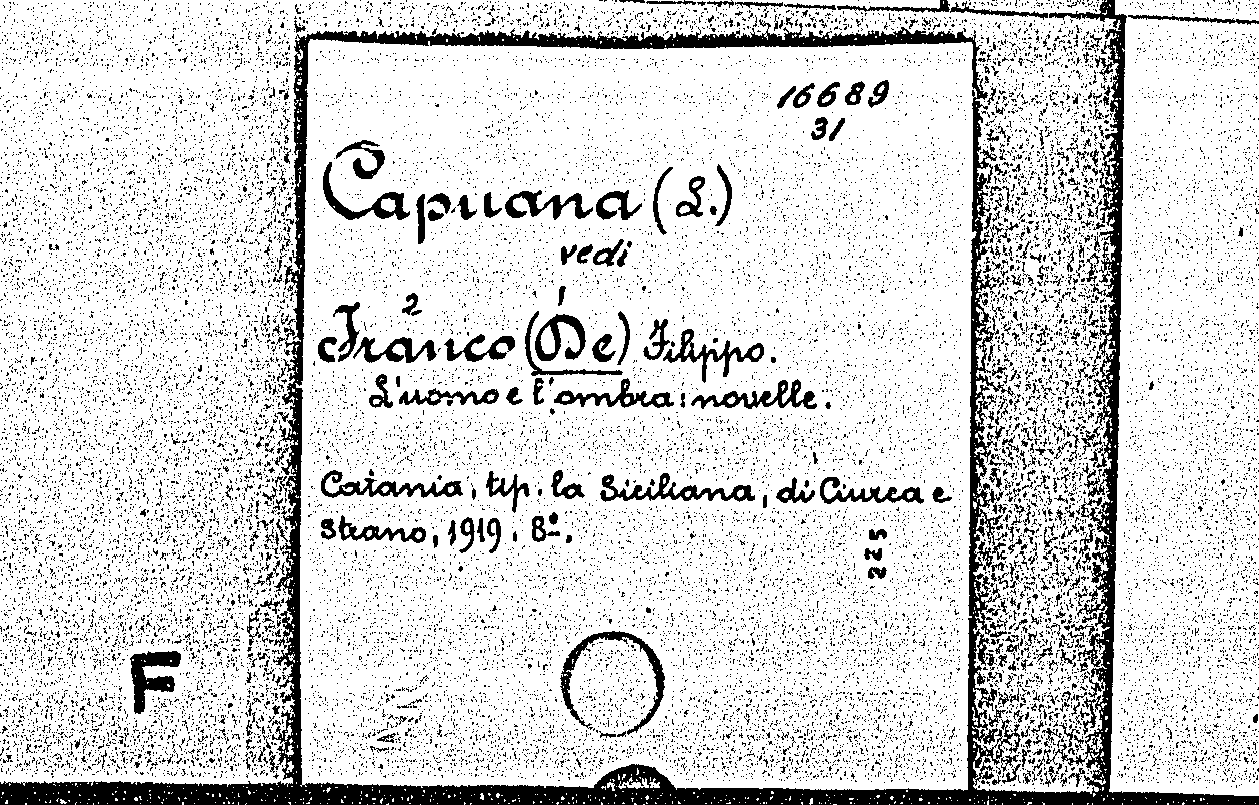 16689
31
Capuana (L.)
vedi
2 1
Franco (De) Filippo.
L'uomo e l'ombra: novelle.
Catania, tip. la Siciliana, di Ciurca e
Strano, 1919. 8º.
225
F